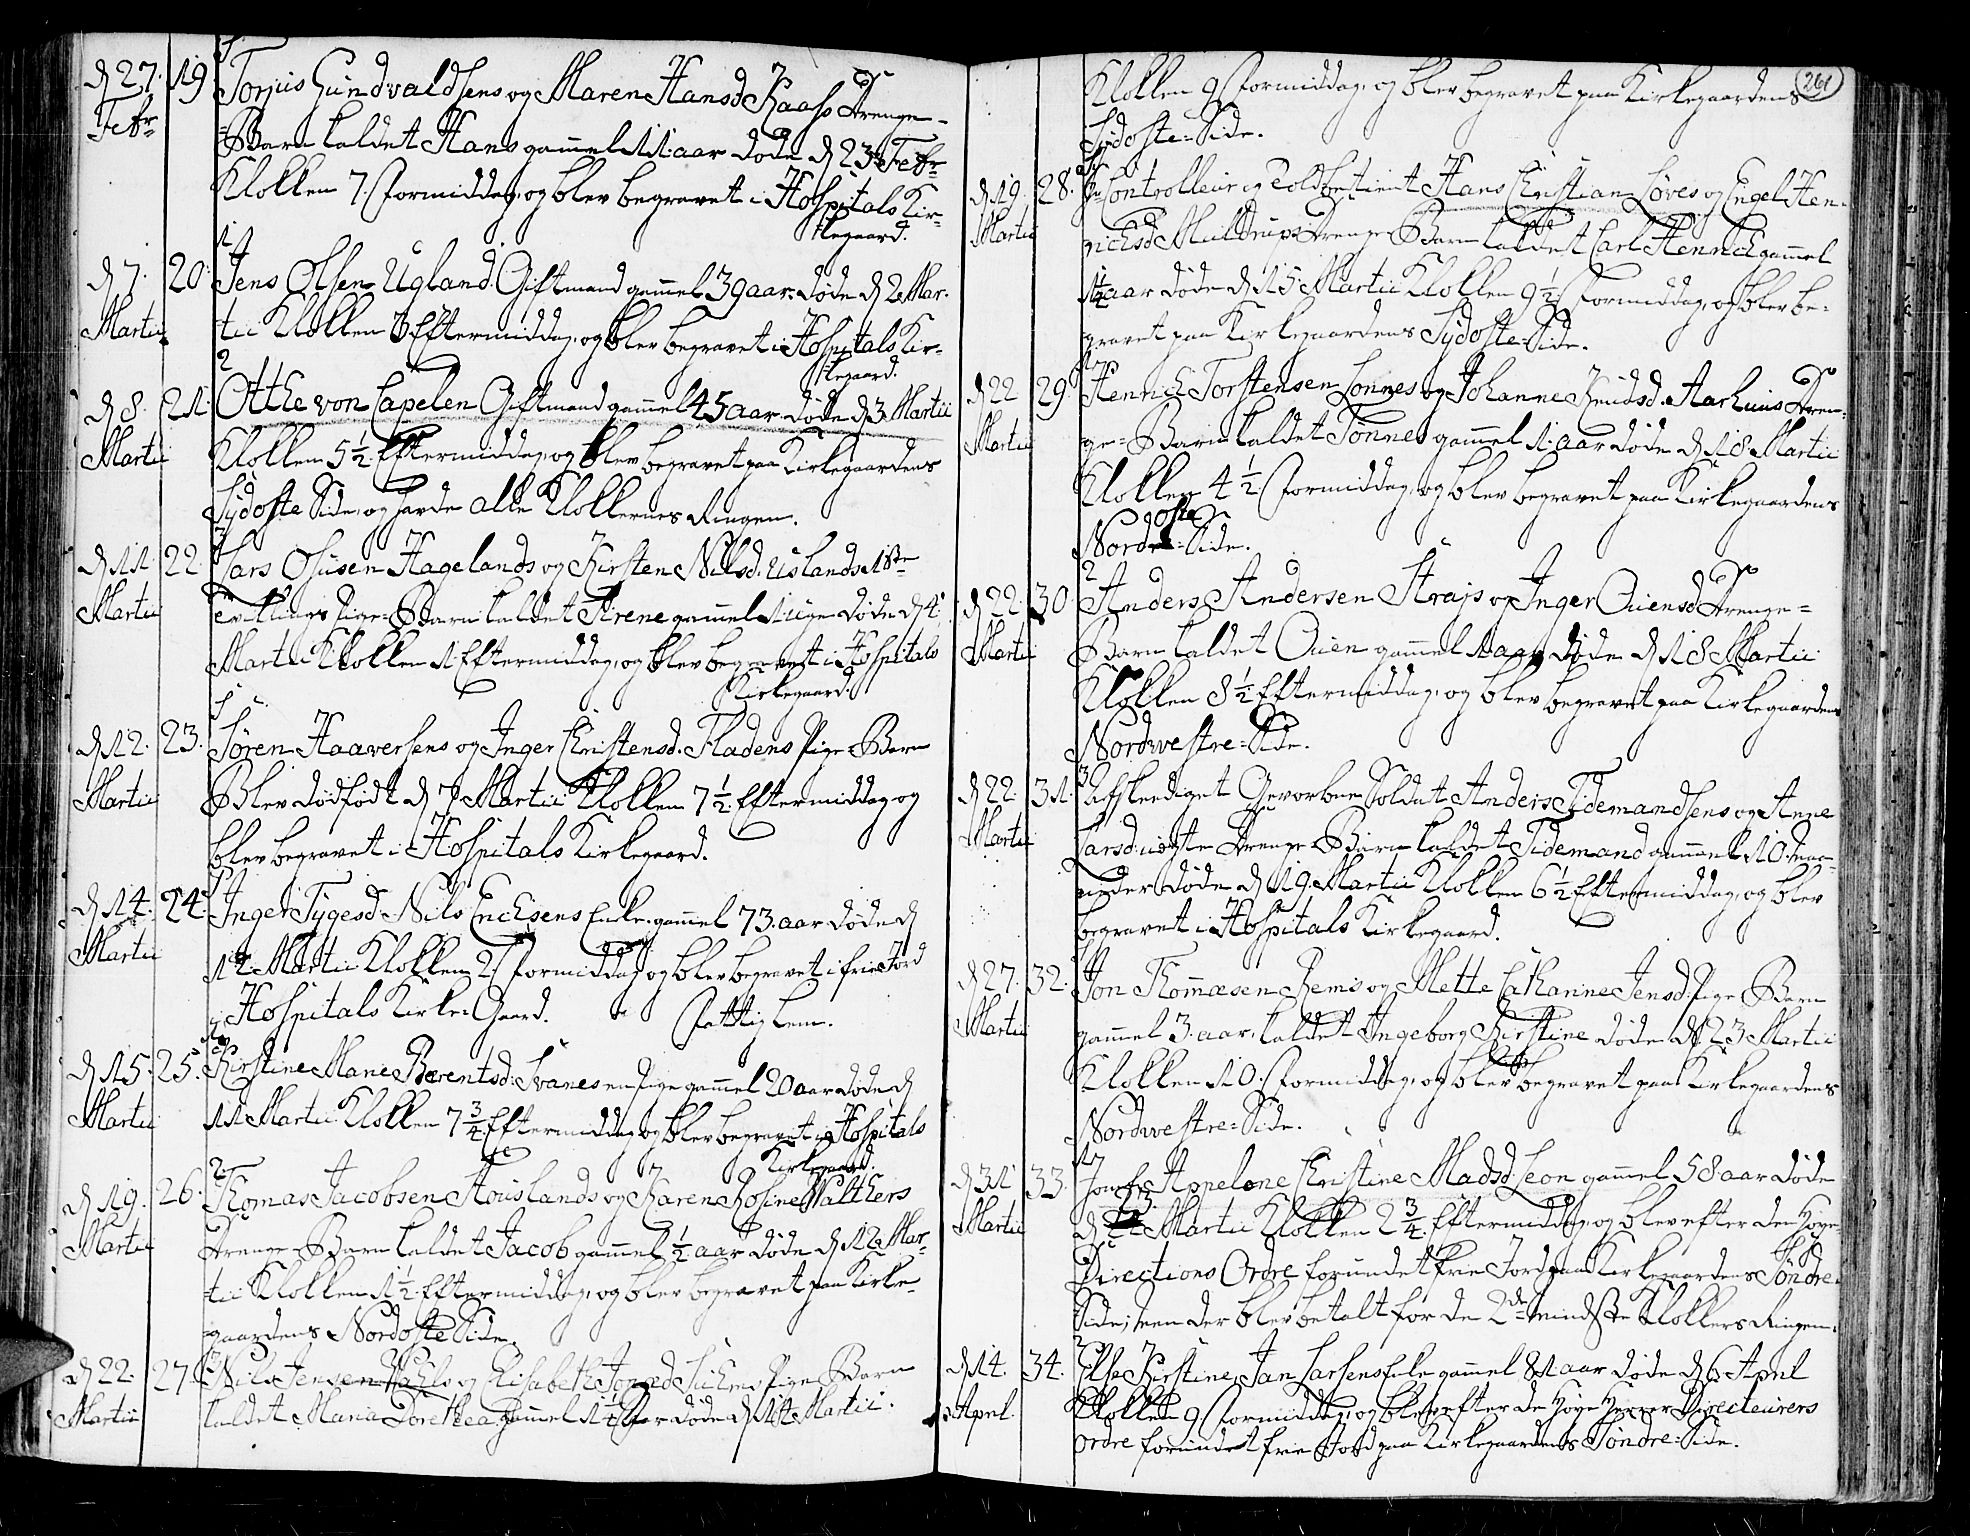 d 27. 19 Torjus Gundvaldsens og Maren Hansd Kaass Drenge-
Febr Barn kaldet Hans gammel 11 aar døde d 23 Febr
Klokken 7. Formiddag, og blev begravet i Hospitals Kir-
kegaard.
d 7. 20. Jens Olsen Ugland Giftmand gammel 39 aar døde d 2 Mar-
Martii tii Klokken 3 Eftermiddag, og blev begravet i Hospitals Kir-
kegaard.
d 8. 21. Otthe von Capelen Giftmand gammel 45 aar døde d 3 Martii
Martii Klokken 5½ Eftermiddag, og blev begravet paa Kirkegaardens
Sydoste Side, og havde alle Klokkernes Ringen.
d 11 22 Lars Osusen Hagelands og Kirsten Nilsd. Uslands 1ste
Martii Tvillings Pige-Barn kaldet Anne gammel 1 uge døde d 4
Martii Klokken 1 Eftermiddag, og blev begravet i Hospitals
Kirkegaard.
d 12. 23. Søren Haaversens og Inger Christensd. Fladens Pige-Barn
Martii Blev dødfødt d 7 Martii Klokken 7½ Eftermiddag og
blev begravet i Hospitals Kirkegaard.
d 14. 24. Inger Tygesd Nils Erichsens Enke gammel 73 aar døde d
Martii 12 Martii Klokken 2 Formiddag og blev begravet i frie Jord
i Hospitals Kirke-Gaard. Fattig Lem.
d 15. 25. Kirstine Marie Berentsd: Svanes en Pige gammel 20 aar døde d
Martii 11 Martii Klokken 7¾ Eftermiddag og blev begravet i Hospitals
Kirkegaard.
d 19. 26. Thomas Jacobsen Houslands og Karen Rosine Walthers
Martii Drenge-Barn kaldet Jacob gammel ½ aar døde d 12 Mar-
tii Klokken 1½ Eftermiddag, og blev begravet paa Kirke-
gaardens Nordoste Side.
d 22. 27. Nils Jensen og Elisabeth Pige-Barn
Martii kaldet Maria Dorethea gammel 1½ aar døde d 14 Martii.
261
Klokken 9 Formiddag, og blev begravet paa Kirkegaardens
Sydoste-Side.
d 19. 28. Controlleur og Toldbetient Hans Christian Løves og Engel Hen-
Martii richsd Muldrups Drenge-Barn kaldet Carl Henrich gammel
½ aar døde d 15 Martii Klokken 9½ Formiddag, og blev be-
gravet paa Kirkegaardens Sydoste-Side.
d 22 29. Henrich Torstensen Lonnes og Johanne Knudsd. Aarhuus Dren-
Martii ge-Barn kaldet Tønnes gammel 1 aar døde d 18 Martii
Klokken 4½ Formiddag, og blev begravet paa Kirkegaardens
Nordoste-Side.
d 22 30 Anders Andersen Strajs og Inger Ouensd Drenge-
Martii Barn kaldet Ouen gammel 1 aar døde d 18 Martii
Klokken 8½ Eftermiddag, og blev begravet paa Kirkegaardens
Nordvestre-Side.
d 22. 31. Afskediget Gevorben Soldat Anders Tidemandsens og Anne
Martii Larsd: ægte Drenge-Barn kaldet Tidemand gammel 10 maa-
neder døde d 19 Martii Klokken 6½ Eftermiddag, og blev
begravet i Hospitals Kirkegaard.
d 27. 32. Jon Thommesen Remis og Mette Catharine Jensd. Pige-Barn
Martii gammel 3 aar, kaldet Ingeborg Kirstine døde d 23 Martii
Klokken 10. Formiddag, og blev begravet paa Kirkegaardens
Nordvestre-Side.
d 31 33. Jomfr Appelone Christine Madsd: Leon gammel 58 aar døde
Martii d 23 Martii Klokken 2¾ Eftermiddag, og blev efter de Høye
Directions Ordre forundet frie Jord paa Kirkegaardens Søndre-
Side, men der blev betalt for de 2de mindste Klokkers Ringen.
d 14. 34. Else Kirstine, Jan Larsens Enke gammel 81 aar døde d 6 April
April Klokken 9 Formiddag, og blev efter de Høye Herrer Directeurers
Ordre forundet frie Jord paa Kirkegaardens Søndre-Side.